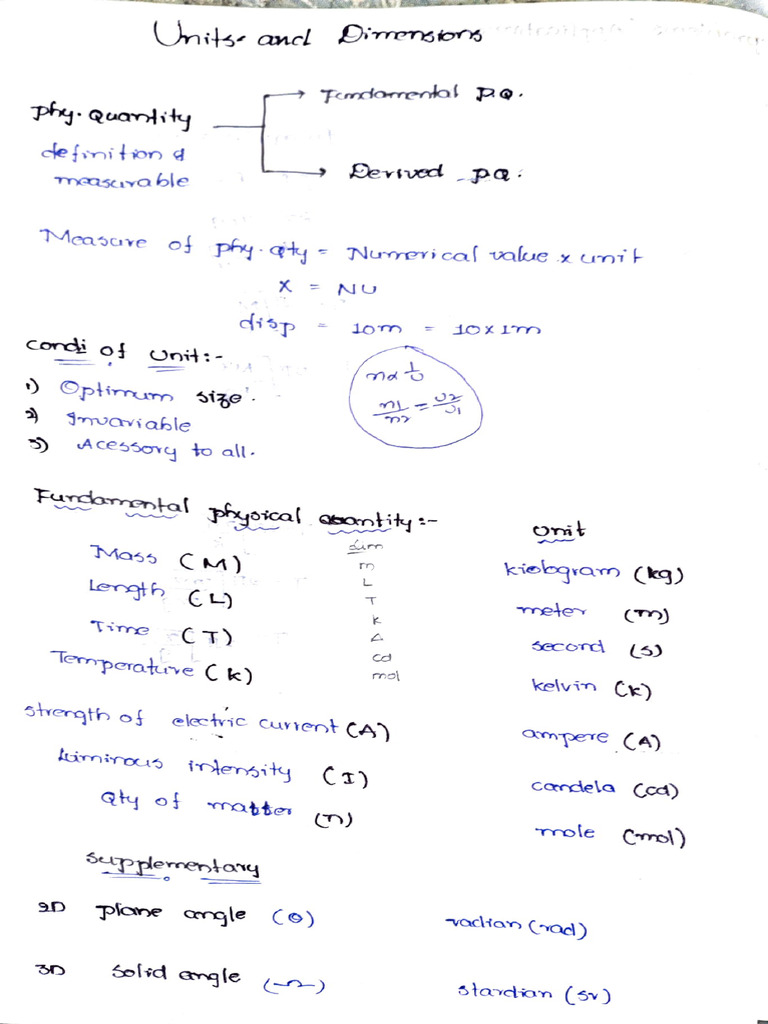 Units and Dimensions
Fundamental P.Q.
phy. Quantity
definition &
measurable
Derived P.Q.
Measure of phy. qty = Numerical value x unit
x = NU
disp = 10m = 10 x 1m
condi of unit:-
1) Optimum size.
2) Invariable
3) Acessory to all.
n α 1/U
n1/n2 = U2/U1
Fundamental physical Quantity:-
Unit
dim
Mass (M) m kiologram (kg)
Length (L) L meter (m)
Time (T) T second (s)
Temperature (k) k kelvin (k)
A
cd
mol
strength of electric current (A) ampere (A)
Luminous intensity (I) candela (cd)
Qty of matter (n) mole (mol)
supplementary
2D plane angle (θ) radian (rad)
3D solid angle (Ω) stardian (sr)